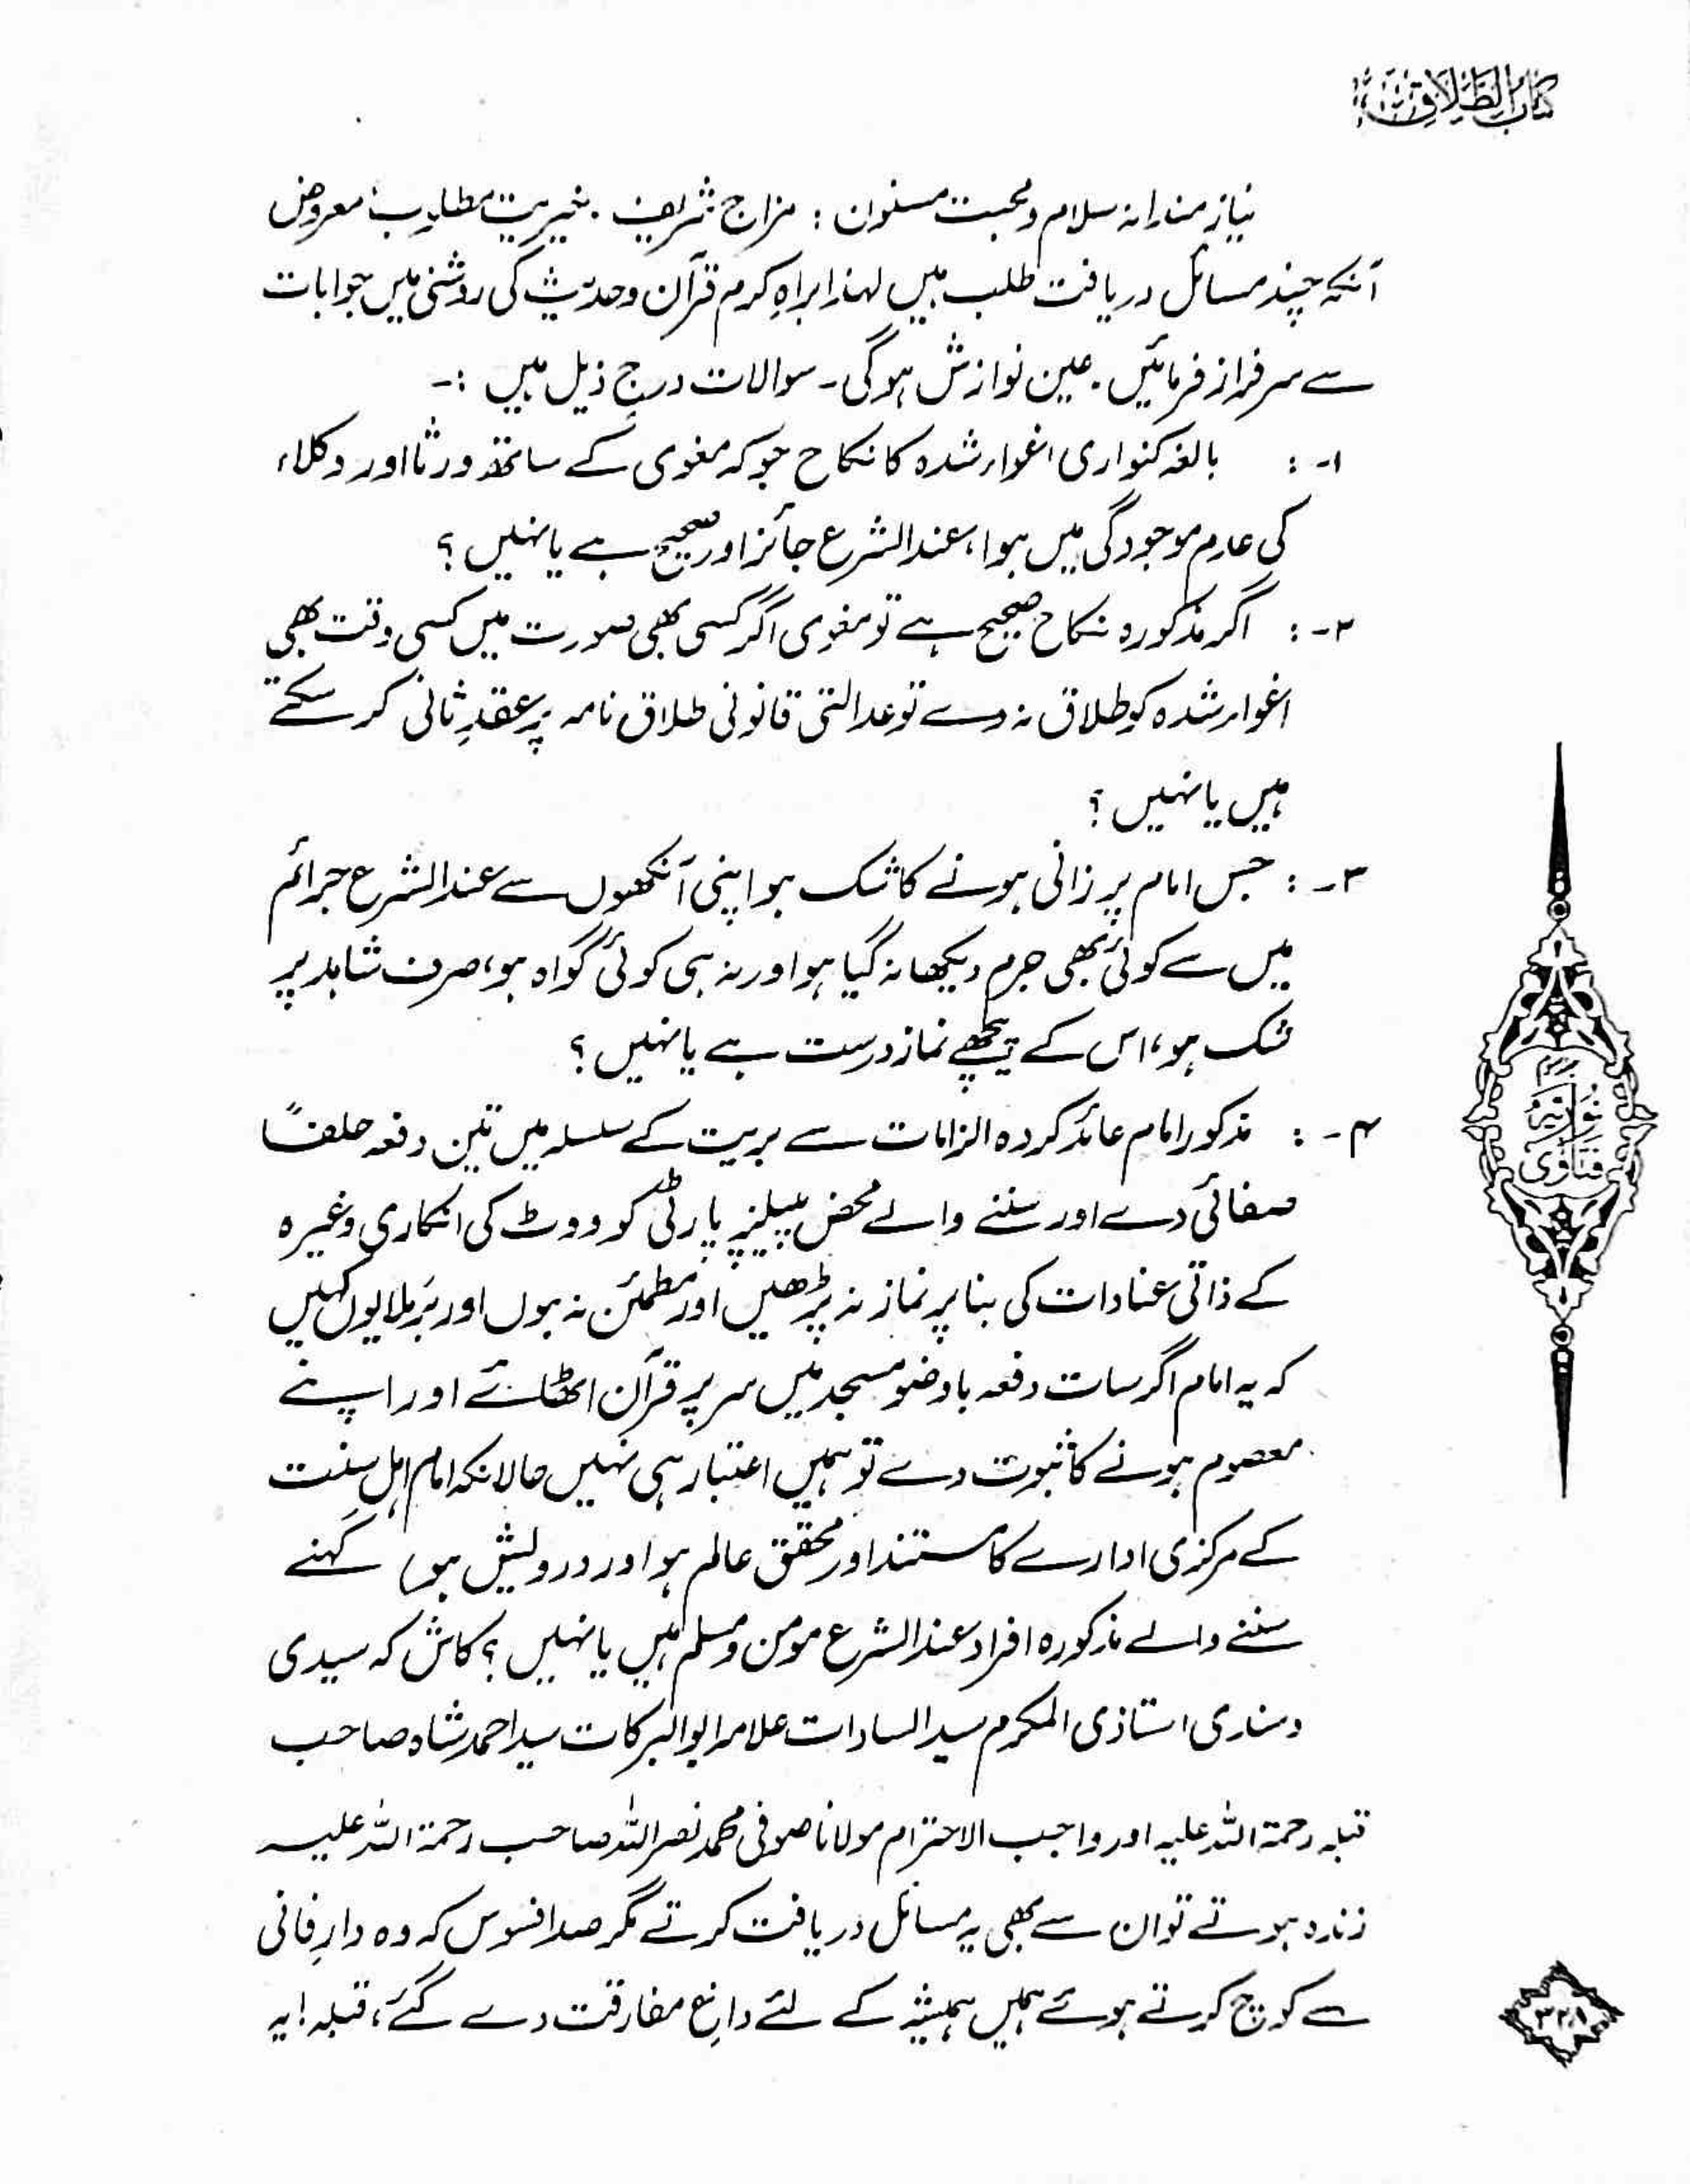 کتاب الطلاق
نیازمندانہ سلام و محبت مسنون : مزاج شریف ۔ خیریت مطلوب ! معروض
آنکہ چند مسائل دریافت طلب ہیں لہٰذا براہِ کرم قرآن و حدیث کی روشنی میں جوابات
سے سرفراز فرمائیں ۔ عین نوازش ہوگی ۔ سوالات درج ذیل ہیں :۔
۱۔ : بالغہ کنواری اغوار شدہ کا نکاح جو کہ مغوی کے ساتھ ورثا اور وکلاء
کی عدم موجودگی میں ہوا، عند الشرع جائز اور صحیح ہے یا نہیں ؟
۲۔ : اگر مذکورہ نکاح صحیح ہے تو مغوی اگر کسی بھی صورت میں کسی وقت بھی
اغوار شدہ کو طلاق نہ دے تو عدالتی قانونی طلاق نامہ پر عقدِ ثانی کر سکتے
ہیں یا نہیں ؟
۳۔ : جس امام پر زانی ہونے کا شک ہو اپنی آنکھوں سے عند الشرع جرائم
میں سے کوئی بھی جرم دیکھا نہ گیا ہو اور نہ ہی کوئی گواہ ہو، صرف شاہد پر
شک ہو، اس کے پیچھے نماز درست ہے یا نہیں ؟
۴۔ : مذکور امام عائد کردہ الزامات سے بریت کے سلسلہ میں تین دفعہ حلفاً
صفائی دے اور سننے والے محض پیپلز پارٹی کو ووٹ کی انکاری وغیرہ
کے ذاتی عنادات کی بنا پر نماز نہ پڑھیں اور مطمئن نہ ہوں اور برملا یوں کہیں
کہ یہ امام اگر سات دفعہ باوضو مسجد میں سر پر قرآن اٹھائے اور اپنے
معصوم ہونے کا ثبوت دے تو ہمیں اعتبار ہی نہیں حالانکہ امام اہل سنت
کے مرکزی ادارے کا مستند اور محقق عالم ہو اور درویش ہو، کہنے
سننے والے مذکورہ افراد عند الشرع مومن و مسلم ہیں یا نہیں ؟ کاش کہ سیدی
و سندی استاذی المکرم سید السادات علامہ ابوالبرکات سید احمد شاہ صاحب
قبلہ رحمۃ اللہ علیہ اور واجب الاحترام مولانا صوفی محمد نصر اللہ صاحب رحمۃ اللہ علیہ
زندہ ہوتے تو ان سے بھی یہ مسائل دریافت کرتے مگر صد افسوس کہ وہ دارِ فانی
سے کوچ کرتے ہوئے ہمیں ہمیشہ کے لئے داغِ مفارقت دے گئے، قبلہ ! یہ
فتاویٰ نوریہ
۳۲۸